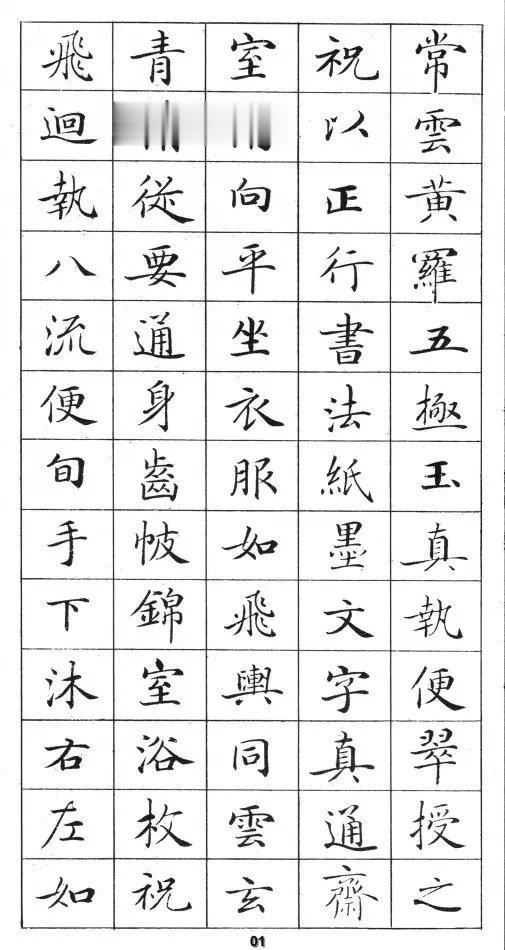 常雲黄羅五極玉真執便翠授之
祝以正行書法紙墨文字真通齋
室向平坐衣服如飛輿同雲玄
青從要通身齒帔錦室浴枚祝
飛迴執八流便旬手下沐右左如
01